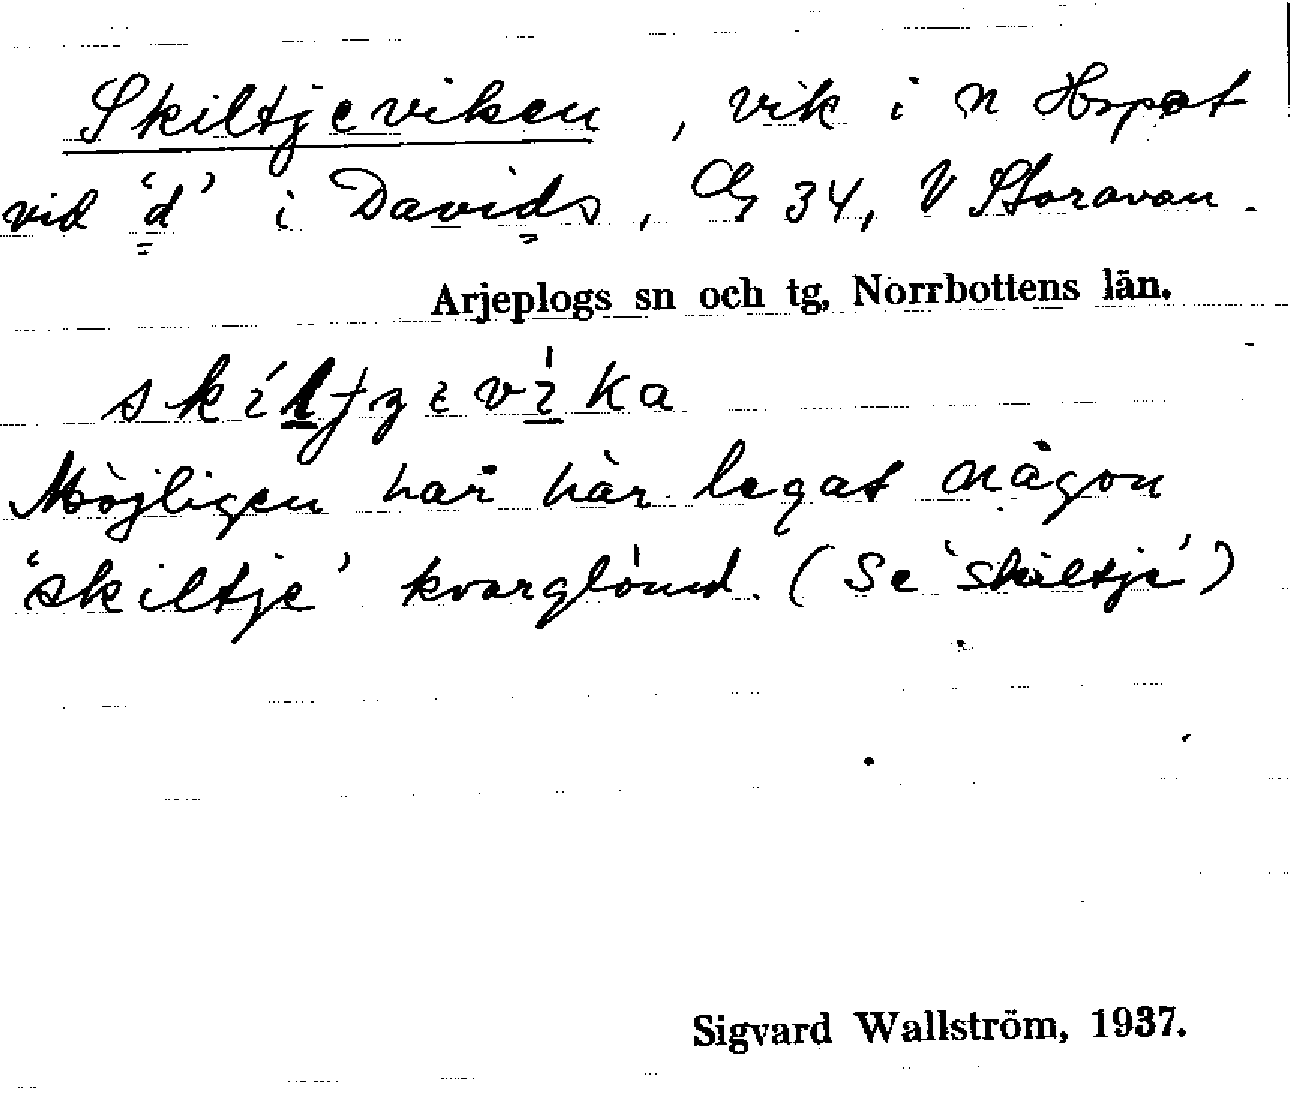 Skiltjeviken, vik i n Hspot
vid 'd' i Davids, Cg 34, V Storavan.
Arjeplogs sn och tg, Norrbottens län.
Möjligen har här legat någon
'skiltje' kvarglömd. (Se 'skiltje')
Sigvard Wallström, 1937.